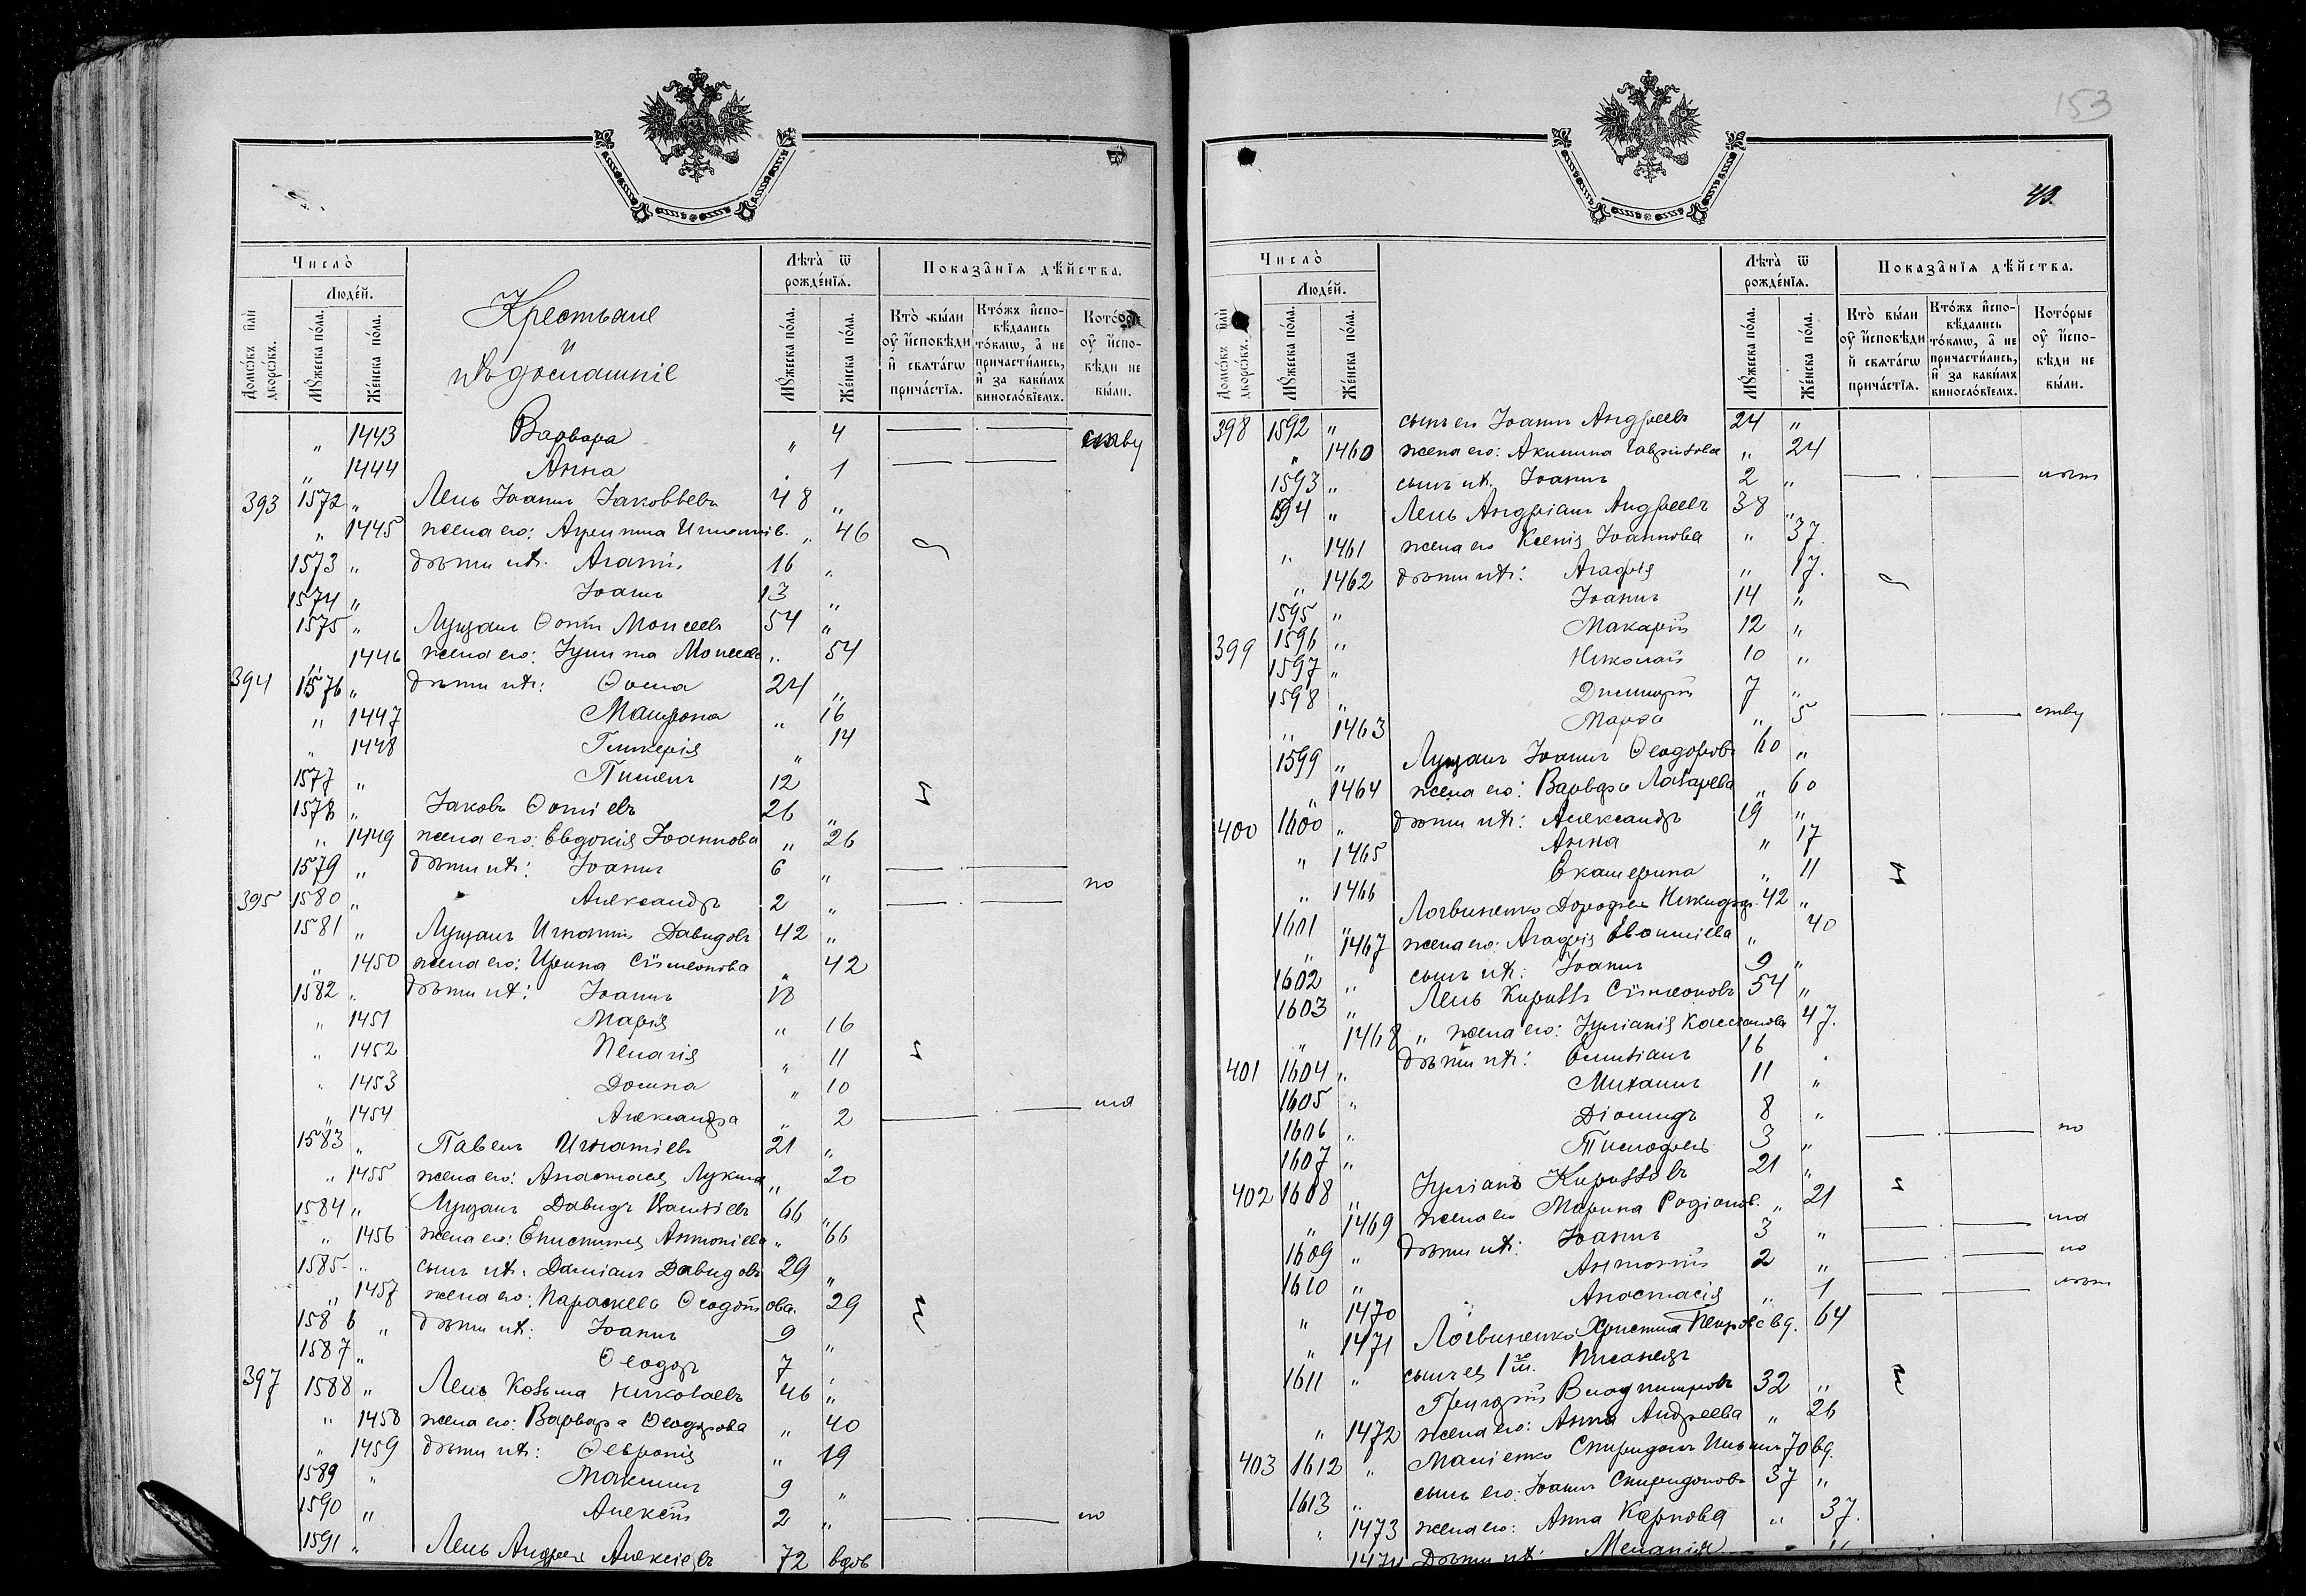 Число̀
Домѡ́въ и҆лѝ дворѡ́въ.
Люде́й.
Мꙋ́жеска по́ла.
Же́нска по́ла.
Крестьяне
и
ихъ домашніе
Лѣта̀ ѿ рожде́нїѧ.
Мꙋ́жеска по́ла.
Же́нска по́ла.
Показа̑нїѧ дѣ́йства.
Кто̀ бы́ли оу҆ и҆сповѣди и҆ свѧта́гѡ прича́стїѧ.
Кто́жъ и҆спо-вѣдались то́кмѡ, а҆ не причасти́лись, и҆ за каки́мъ винословїемъ.
Кото́рые оу҆ и҆спо-вѣди не бы́ли.
„ 1443 Варвара „ 4
„ 1444 Анна „ 1
393 1572 „ Лень Іоаннъ Іаковлевъ 48 „
„ 1445 жена его: Агриппина Игнатіев. „ 46
1573 „ дѣти ихъ: 16 „
1574 „ Іоаннъ 13 „
1575 „ Лущанъ Фотій Моисеевъ 54 „
„ 1446 жена его: Моисеева „ 54
394 1576 „ дѣти ихъ: Ѳома 24 „
„ 1447 Матрона „ 16
„ 1448 Гликерія „ 14
1577 „ Пименъ 12
1578 „ Іаковъ Фотіевъ 26 „
„ 1449 жена его: Евдокія Іоаннова „ 26
1579 „ дѣти ихъ: Іоаннъ 6 „
395 1580 „ Александръ 2 „ по
1581 „ Лущанъ Игнатій Давидовъ 42 „
„ 1450 жена его: Ирина Сѵмеонова „ 42
1582 „ дѣти ихъ: Іоаннъ 18
„ 1451 Марія „ 16
„ 1452 Пелагія „ 11
„ 1453 Домна „ 10
„ 1454 Александра „ 2
1583 „ Павелъ Игнатіевъ 21 „
„ 1455 жена его: Анастасія Лукина „ 20
1584 „ Лущанъ Давидъ 66 „
„ 1456 жена его: Епистимія Антоніева „ 66
1585 „ сынъ ихъ: Даміанъ Давидовъ 29 „
„ 1457 жена его: Параскева 29
1586 „ дѣти ихъ: Іоаннъ 9 „
1587 „ Ѳеодоръ 7
397 1588 „ Лень Козьма Николаевъ 46 „
„ 1458 жена его: Варвара Ѳеодорова „ 40
„ 1459 дѣти ихъ: Февронія „ 19
1589 „ Максимъ 9 „
1590 „ Алексій 2 „
1591 „ Лень Андрей Алексіевъ 72 вдов
153
43
Число̀
Домѡ́въ и҆лѝ дворѡ́въ.
Люде́й.
Мꙋ́жеска по́ла.
Же́нска по́ла.
Лѣта̀ ѿ рожде́нїѧ.
Мꙋ́жеска по́ла.
Же́нска по́ла.
Показа̑нїѧ дѣ́йства.
Кто̀ бы́ли оу҆ и҆сповѣди и҆ свѧта́гѡ прича́стїѧ.
Кто́жъ и҆спо-вѣдались то́кмѡ, а҆ не причасти́лись, и҆ за каки́мъ винословїемъ.
Кото́рые оу҆ и҆спо-вѣди не бы́ли.
398 1592 „ сынъ его Іоаннъ Андреевъ 24 „
„ 1460 жена его: Акилина Гавриілова „ 24
1593 „ сынъ ихъ Іоаннъ 2 „
594 „ Лень Андріанъ Андреевъ 38 „
„ 1461 жена его Ксенія Іоаннова „ 37.
„ 1462 дѣти ихъ: Агафія „ 17.
1595 „ Іоаннъ 14 „
399 1596 „ Макарій 12 „
1597 „ Николай 10 „
1598 „ Димитрій 7 „
„ 1463 Марѳа „ 5 ству
1599 „ Лущанъ Іоаннъ Ѳеодоровъ 60 „
„ 1464 жена его: Варвара Лазарева „ 60
400 1600 „ дѣти ихъ: Александръ 19 „
„ 1465 Анна „ 17
„ 1466 Екатерина „ 11
1601 „ Логвиненко Дорофей Никифор. 42 „
„ 1467 жена его: Агафія „ 40
1602 „ сынъ ихъ: Іоаннъ 9 „
1603 „ Лень Кириллъ Сѵмеоновъ 54 „
„ 1468 „ жена его: Іуліанія Кассіанова 47.
401 1604 „ дѣти ихъ: Емиліанъ 16
1605 „ Михаилъ 11 „
1606 „ Діомидъ 8 „
1607 „ Тимофей 3 „ по
402 1608 „ Іуліанъ Кирилловъ 21 „
„ 1469 жена его Марина Родіонов. „ 21
1609 „ дѣти ихъ: Іоаннъ 3 „
1610 „ Антоній 2 „
„ 1470 Анастасія „ 1
„ 1471 Логвиненко Христина Петрова вд. 64
1611 „ сынъ ея 1го
Григорій 32 „
„ 1472 жена его: Анна Андреева „ 26
403 1612 „ Спиридонъ 70 вд.
1613 „ сынъ его: Іоаннъ Спиридоновъ 37 „
„ 1473 жена его: Анна Карпова „ 37.
1474 Дѣти ихъ: Меланія